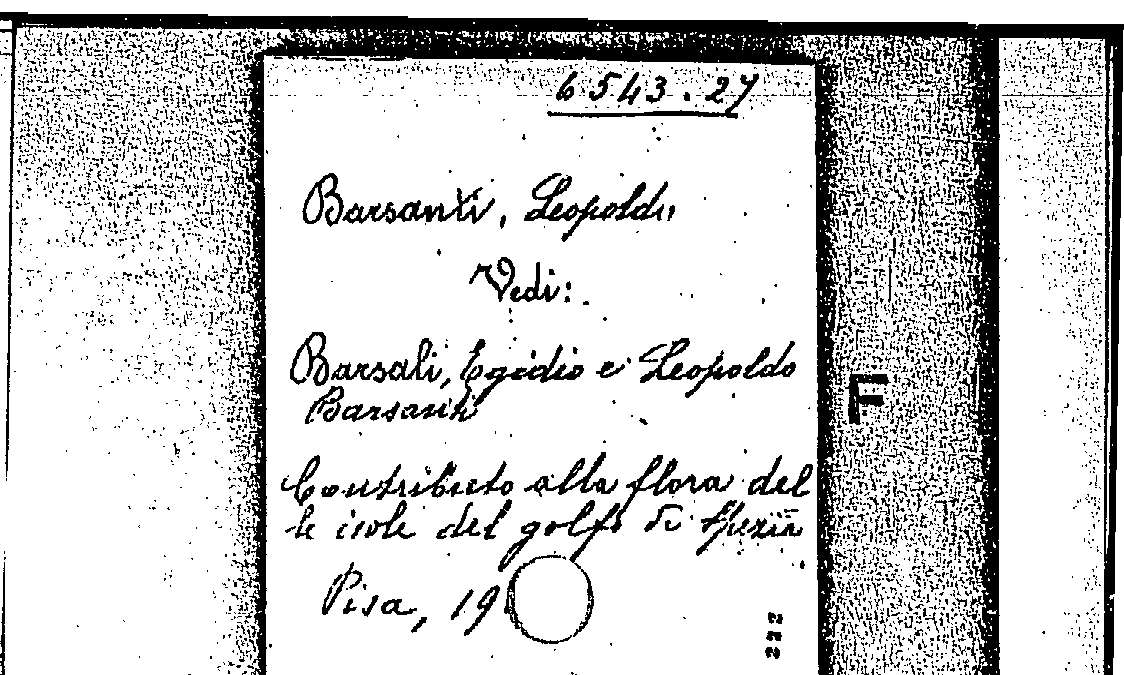 6543.27
Barsanti, Leopoldo
Vedi:
Barsali, Egidio e Leopoldo
Barsanti
Contributo alla flora del
le isole del golfo di Spezia
Pisa, 19
F